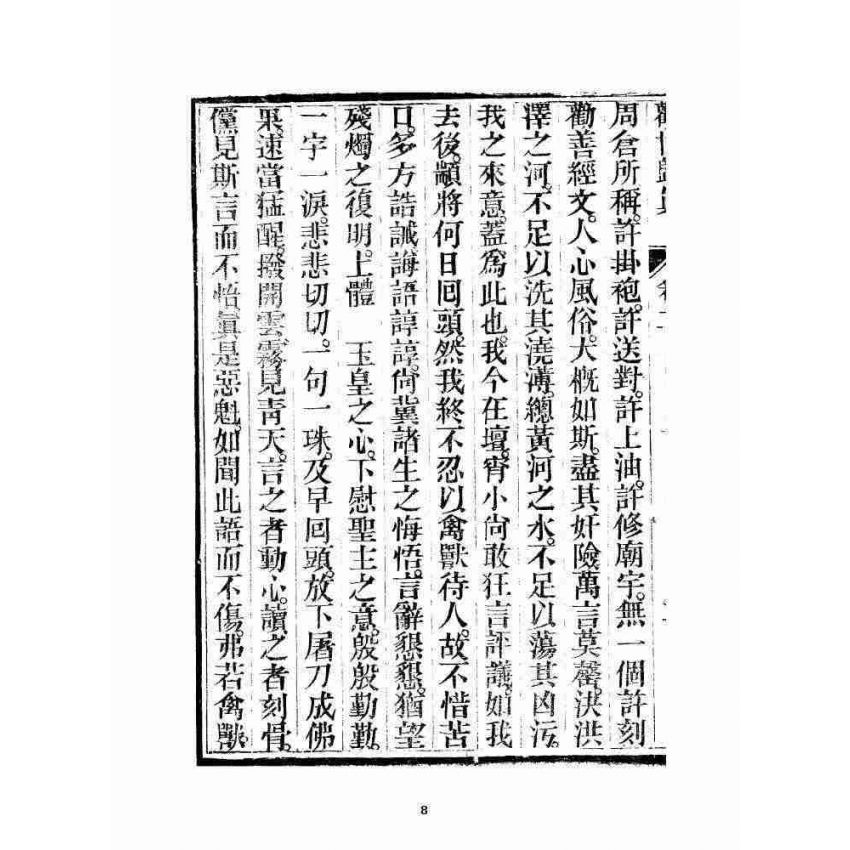 周倉所稱。許掛袍。許送對。許上油。許修廟宇。無一個許刻
勸善經文。人心風俗。大概如斯。盡其奸險萬言莫罄。決洪
澤之河。不足以洗其澆薄。總黃河之水。不足以蕩其凶污。
我之來意。蓋爲此也。我今在壇。宵小尙敢狂言評議。如我
去後。顓將何日囘頭。然我終不忍以禽獸待人。故不惜苦
口。多方誥誡。誨語諄諄。尙冀諸生之悔悟。言辭懇懇。猶望
殘燭之復明。上體　玉皇之心。下慰聖主之意。殷殷勤勤。
一字一淚。悲悲切切。一句一珠。及早囘頭。放下屠刀成佛
果。速當猛醒。撥開雲霧見靑天。言之者動心。讀之者刻骨。
儻見斯言而不悟。眞是惡魁。如聞此語而不傷。弗若禽獸。
8